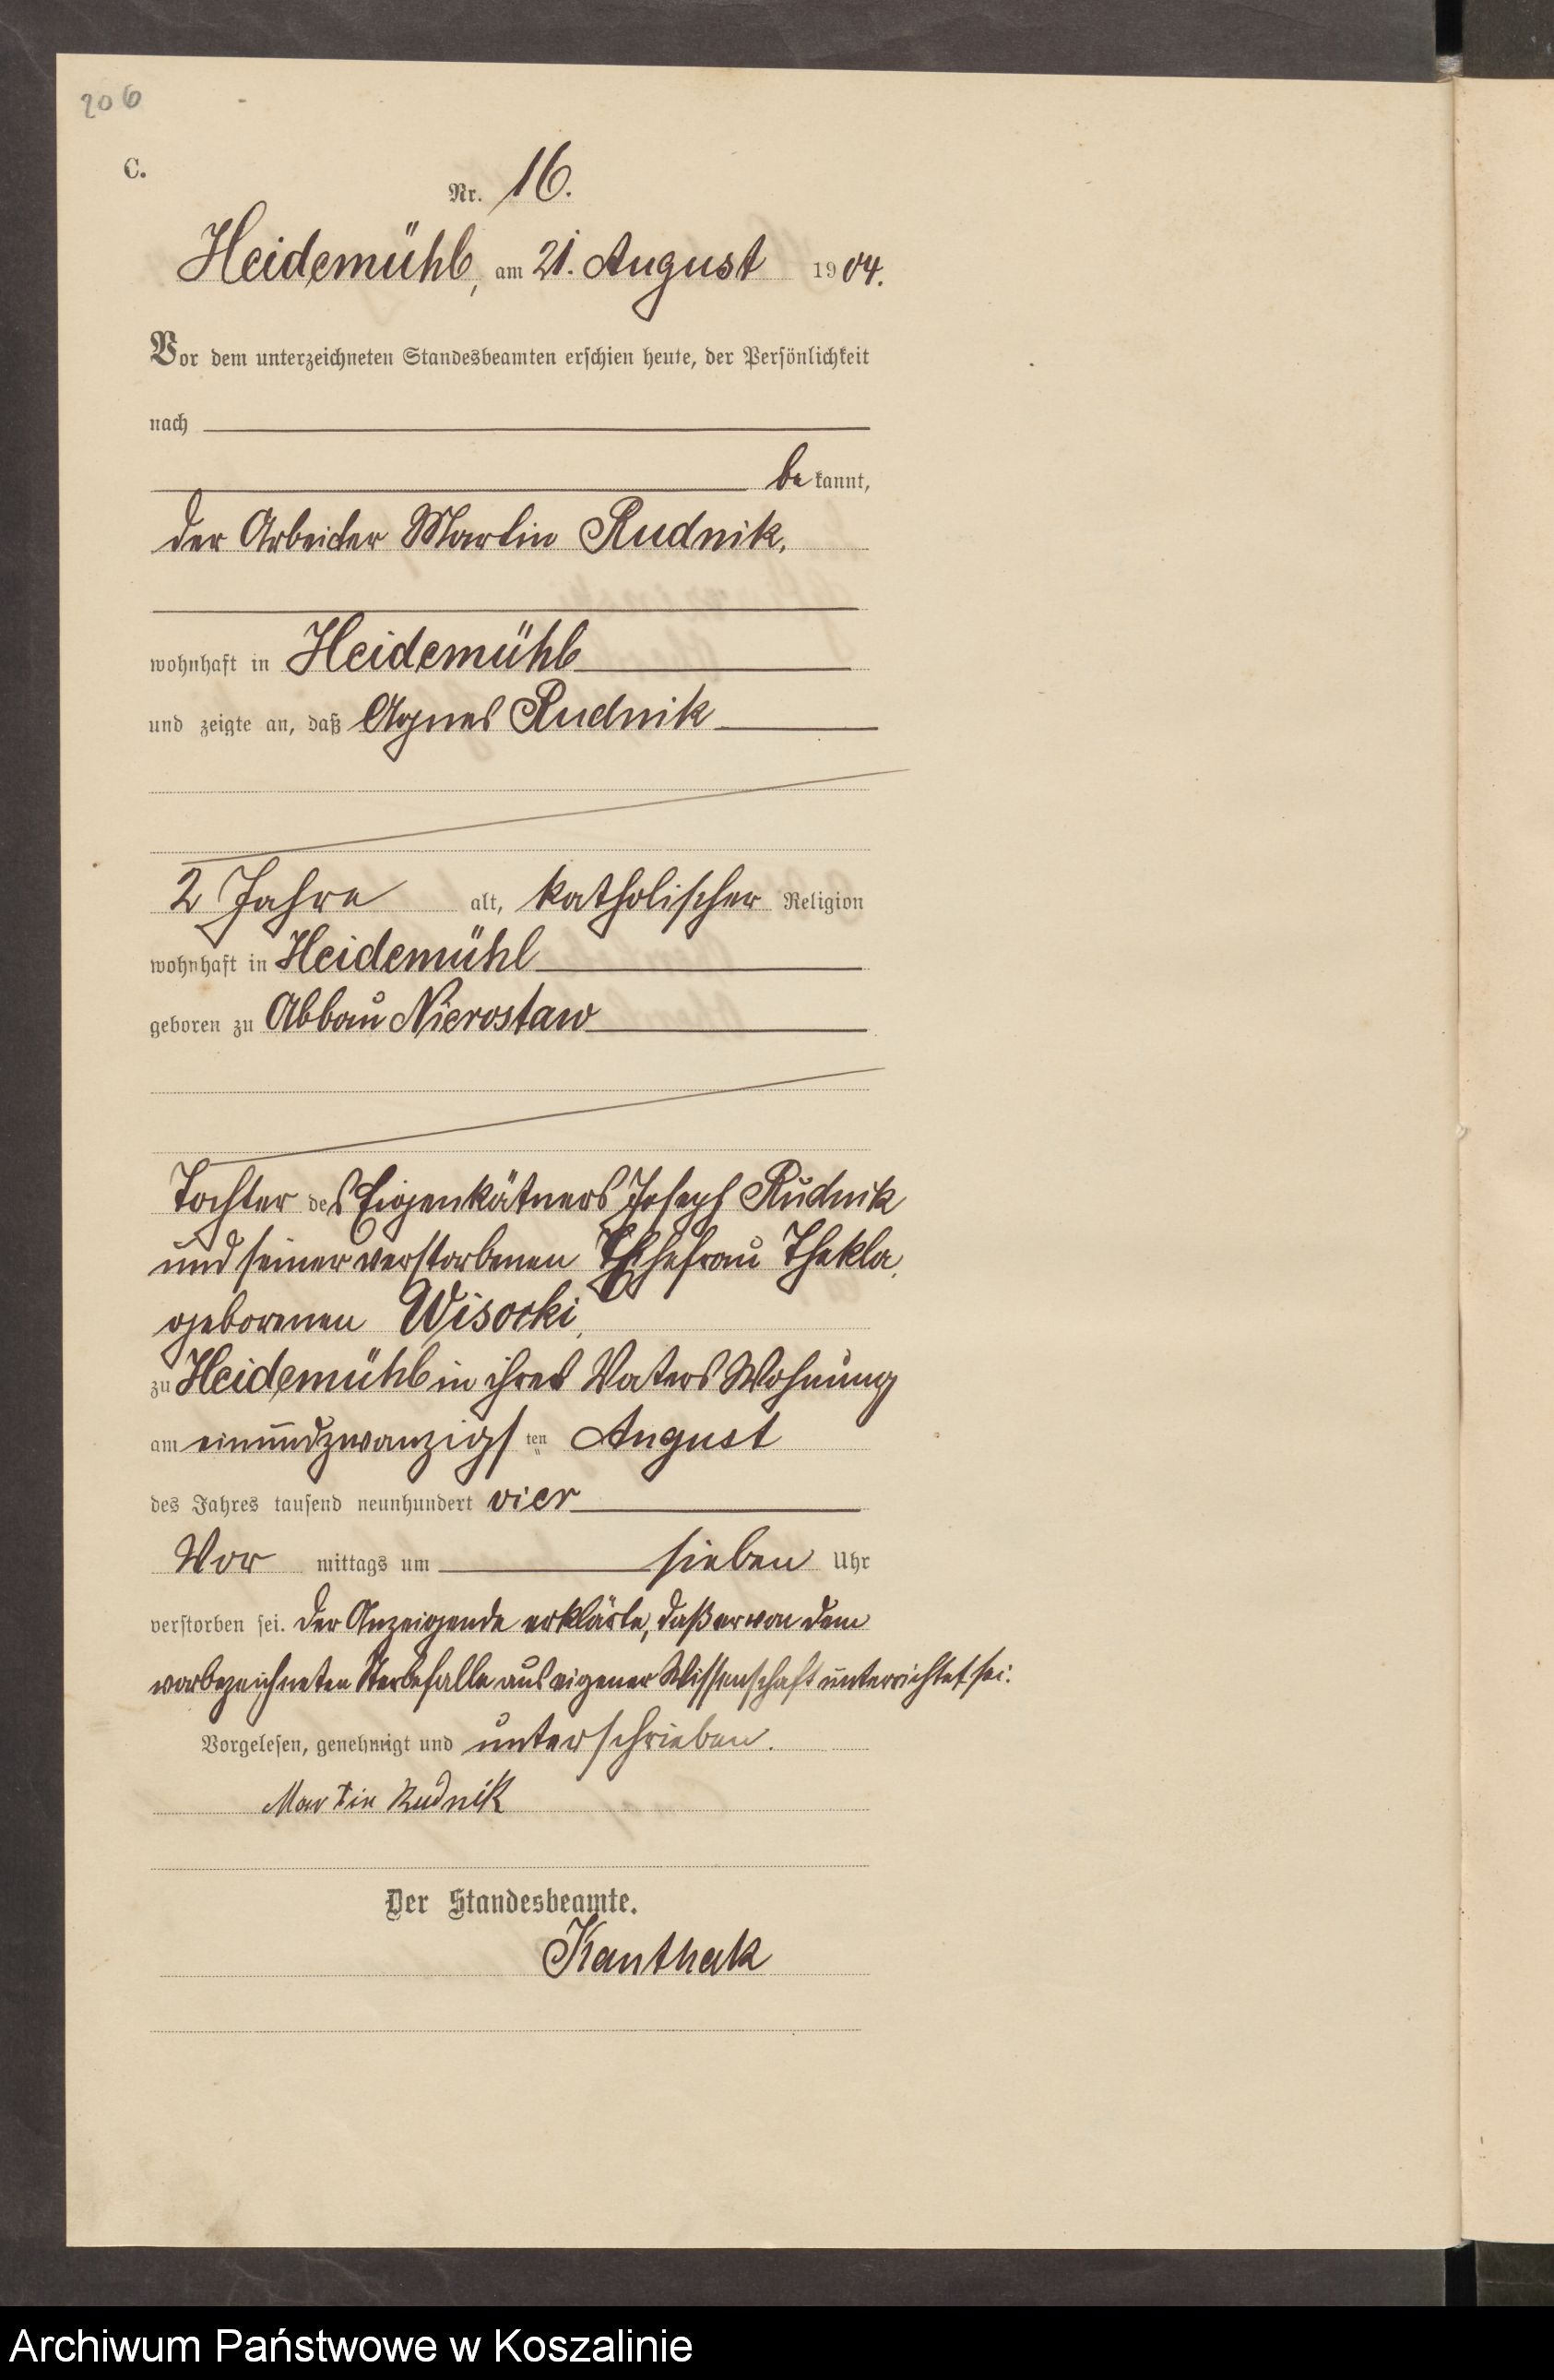 206
C.
Nr. 16.
Heidemühl, am 21. August 1904.
Vor dem unterzeichneten Standesbeamten erschien heute, der Persönlichkeit
nach
be kannt,
der Arbeiter Martin Rudnik,
wohnhaft in Heidemühl
und zeigte an, daß Agnes Rudnik
2 Jahre alt, katholischer Religion
wohnhaft in Heidemühl
geboren zu Abbau Nierostaw
Tochter des Eigenkätners Joseph Rudnik
und seiner verstorbenen Ehefrau Thekla,
geborenen Wisocki,
zu Heidemühl in ihres Vaters Wohnung
am einundzwanzigsten August
des Jahres tausend neunhundert vier
Vor mittags um sieben Uhr
verstorben sei. Der Anzeigende erklärte, daß er von dem
vorbezeichneten Sterbefalle aus eigener Wissenschaft unterrichtet sei.
Vorgelesen, genehmigt und unterschrieben.
Martin Rudnik
Der Standesbeamte.
Kanthak
Archiwum Państwowe w Koszalinie